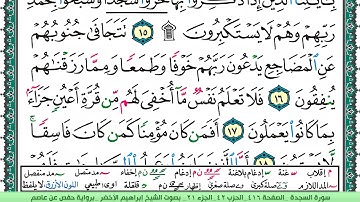 بِـَٔايَـٰتِنَا ٱلَّذِينَ إِذَا ذُكِّرُوا۟ بِهَا خَرُّوا۟ سُجَّدًا وَسَبَّحُوا۟ بِحَمْدِ
رَبِّهِمْ وَهُمْ لَا يَسْتَكْبِرُونَ ۩ ١٥ تَتَجَافَىٰ جُنُوبُهُمْ
عَنِ ٱلْمَضَاجِعِ يَدْعُونَ رَبَّهُمْ خَوْفًا وَطَمَعًا وَمِمَّا رَزَقْنَـٰهُمْ
يُنفِقُونَ ١٦ فَلَا تَعْلَمُ نَفْسٌ مَّآ أُخْفِىَ لَهُم مِّن قُرَّةِ أَعْيُنٍ جَزَآءًۢ
بِمَا كَانُوا۟ يَعْمَلُونَ ١٧ أَفَمَن كَانَ مُؤْمِنًا كَمَن كَانَ فَاسِقًا ۚ
سورة السجدة . الصفحة ٤١٦ الحزب ٤٢ الجزء ٢١ بصوت الشيخ ابراهيم الأخضر . رواية حفص عن عاصم